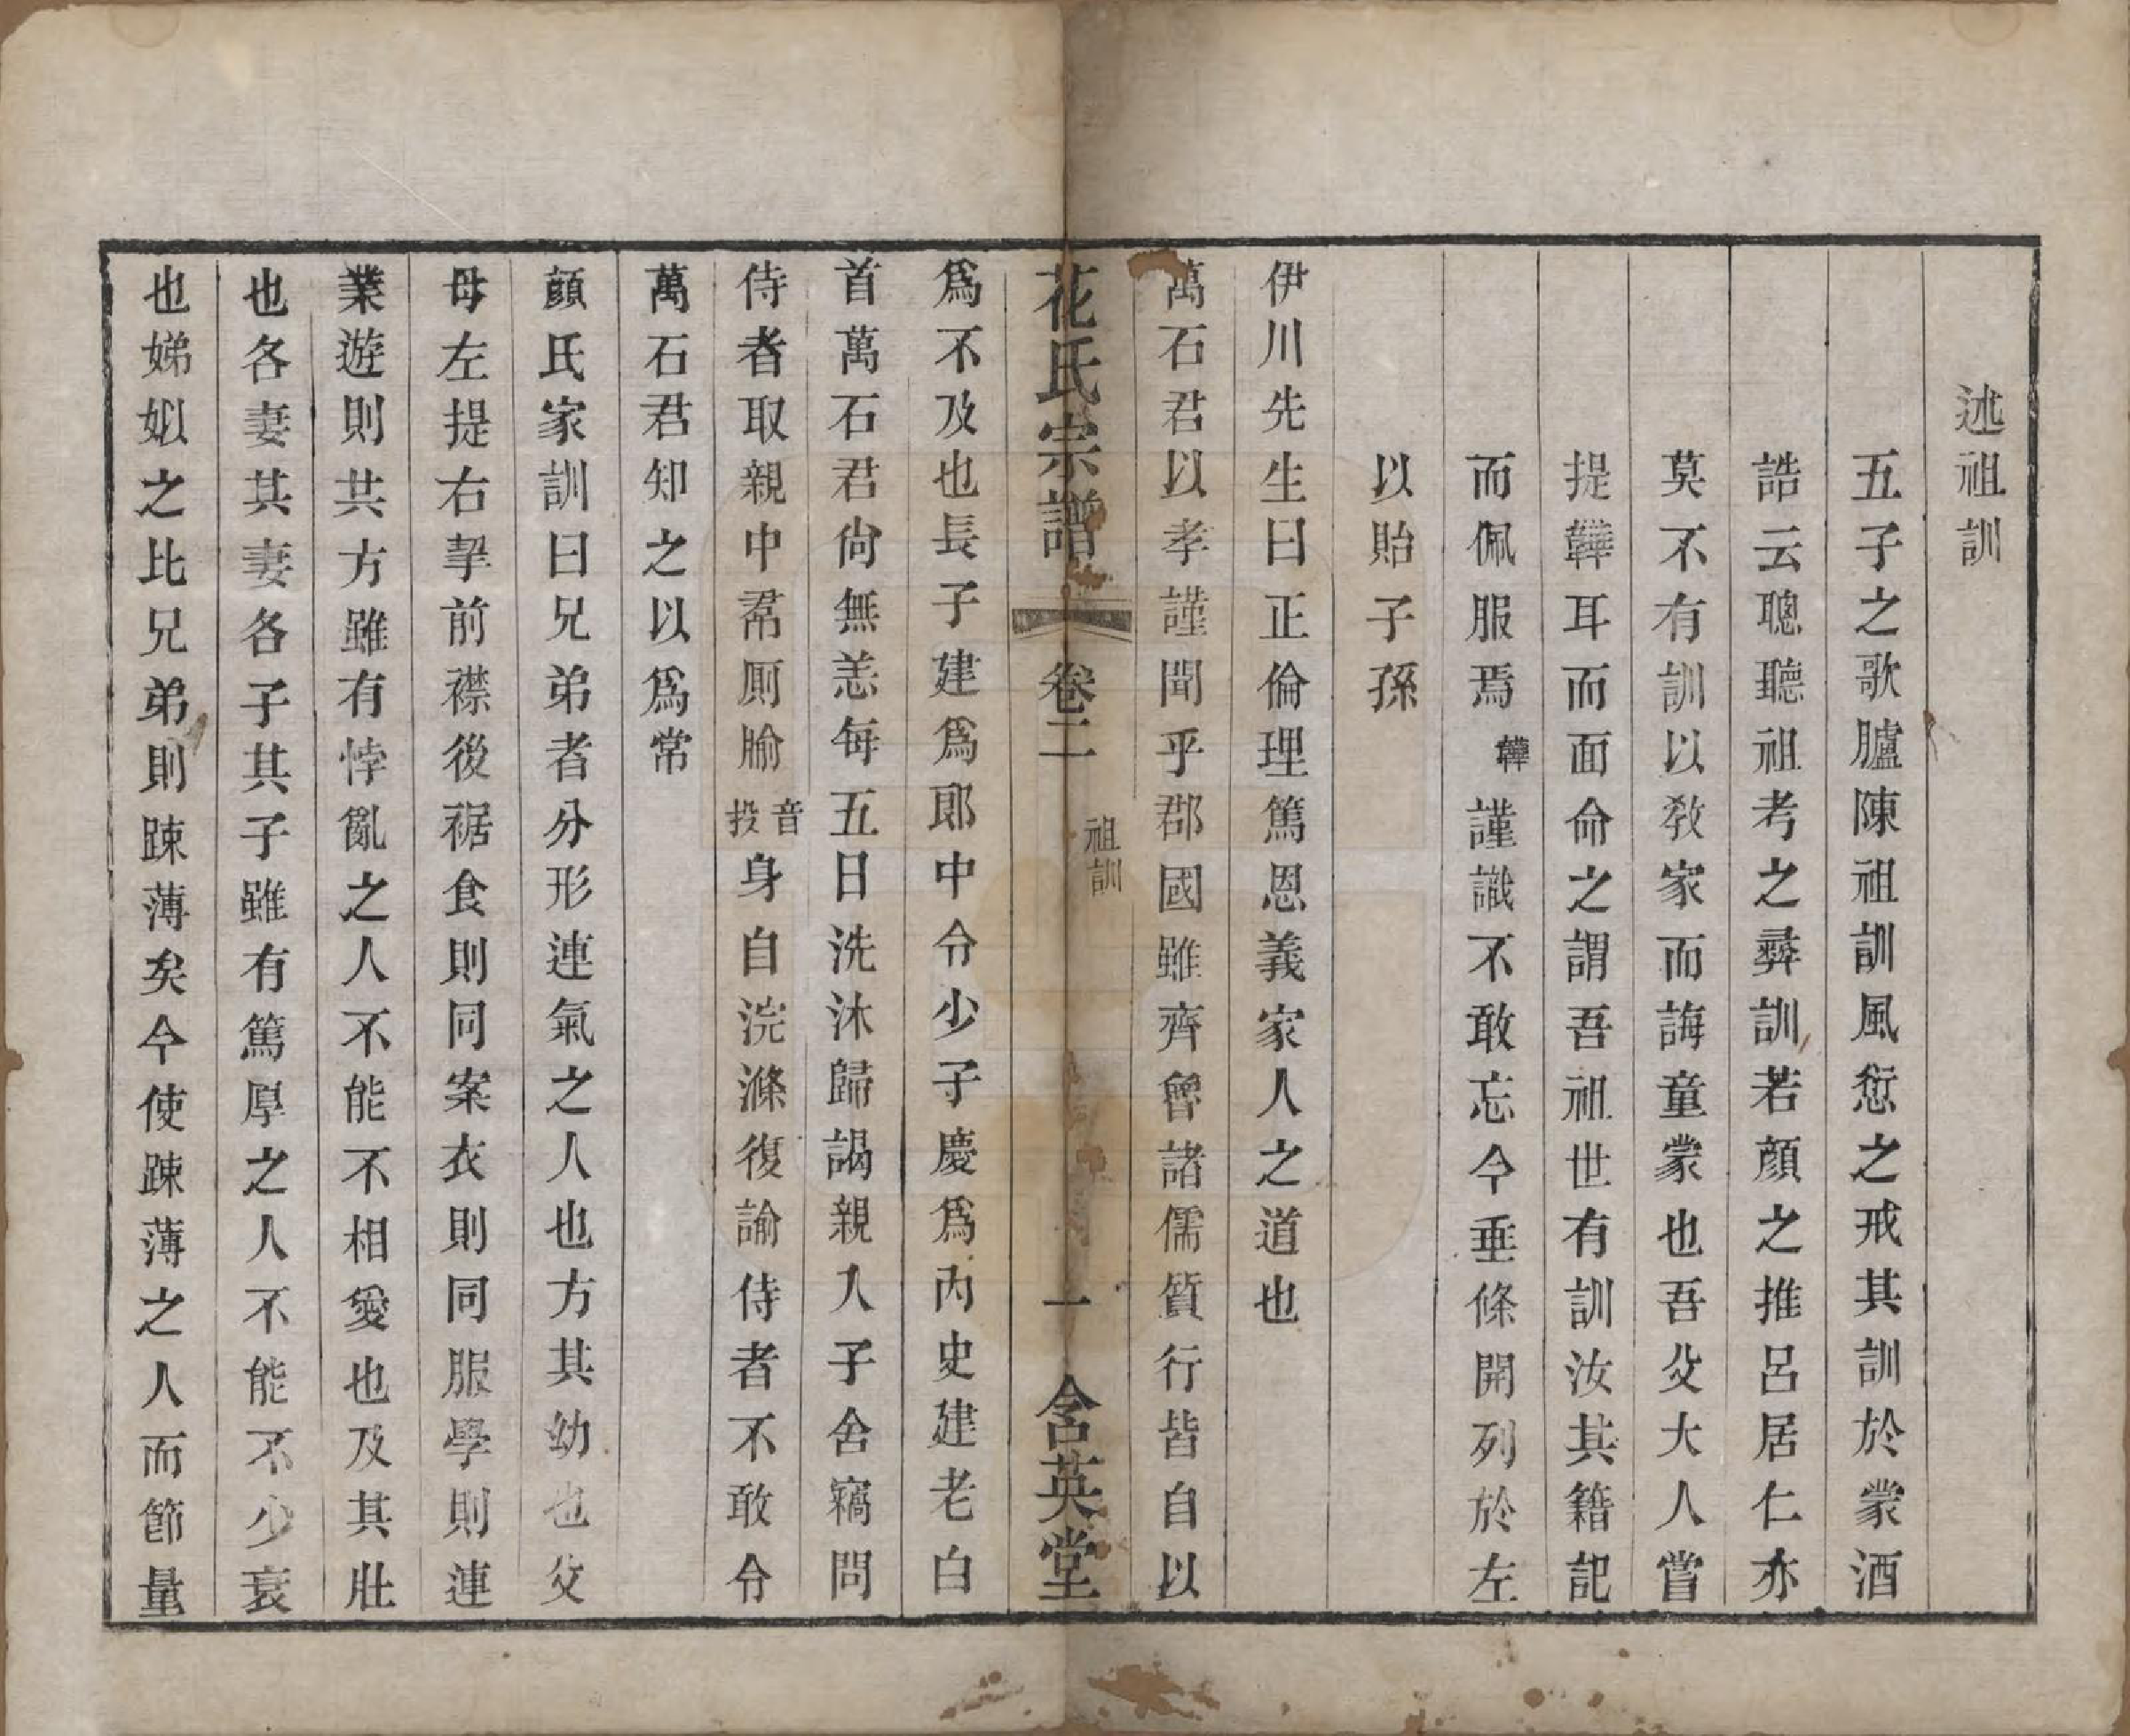 述祖訓
五子之歌臚陳祖訓風愆之戒其訓於蒙酒
誥云聰聽祖考之彝訓若顏之推呂居仁亦
莫不有訓以敎家而誨童蒙也吾父大人嘗
提韡耳而面命之謂吾祖世有訓汝其籍記
而佩服焉韡謹識不敢忘今垂條開列於左
以貽子孫
伊川先生曰正倫理篤恩義家人之道也
萬石君以孝謹聞乎郡國雖齊魯諸儒質行皆自以
花氏宗譜 卷二 祖訓 一 含英堂
爲不及也長子建爲郎中令少子慶爲內史建老白
首萬石君尙無恙每五日洗沐歸謁親入子舍竊問
侍者取親中帬厠牏音投身自浣滌復諭侍者不敢令
萬石君知之以爲常
顏氏家訓曰兄弟者分形連氣之人也方其幼也父
母左提右挈前襟後裾食則同案衣則同服學則連
業遊則共方雖有悖亂之人不能不相愛也及其壯
也各妻其妻各子其子雖有篤厚之人不能不少衰
也娣姒之比兄弟則踈薄矣今使踈薄之人而節量